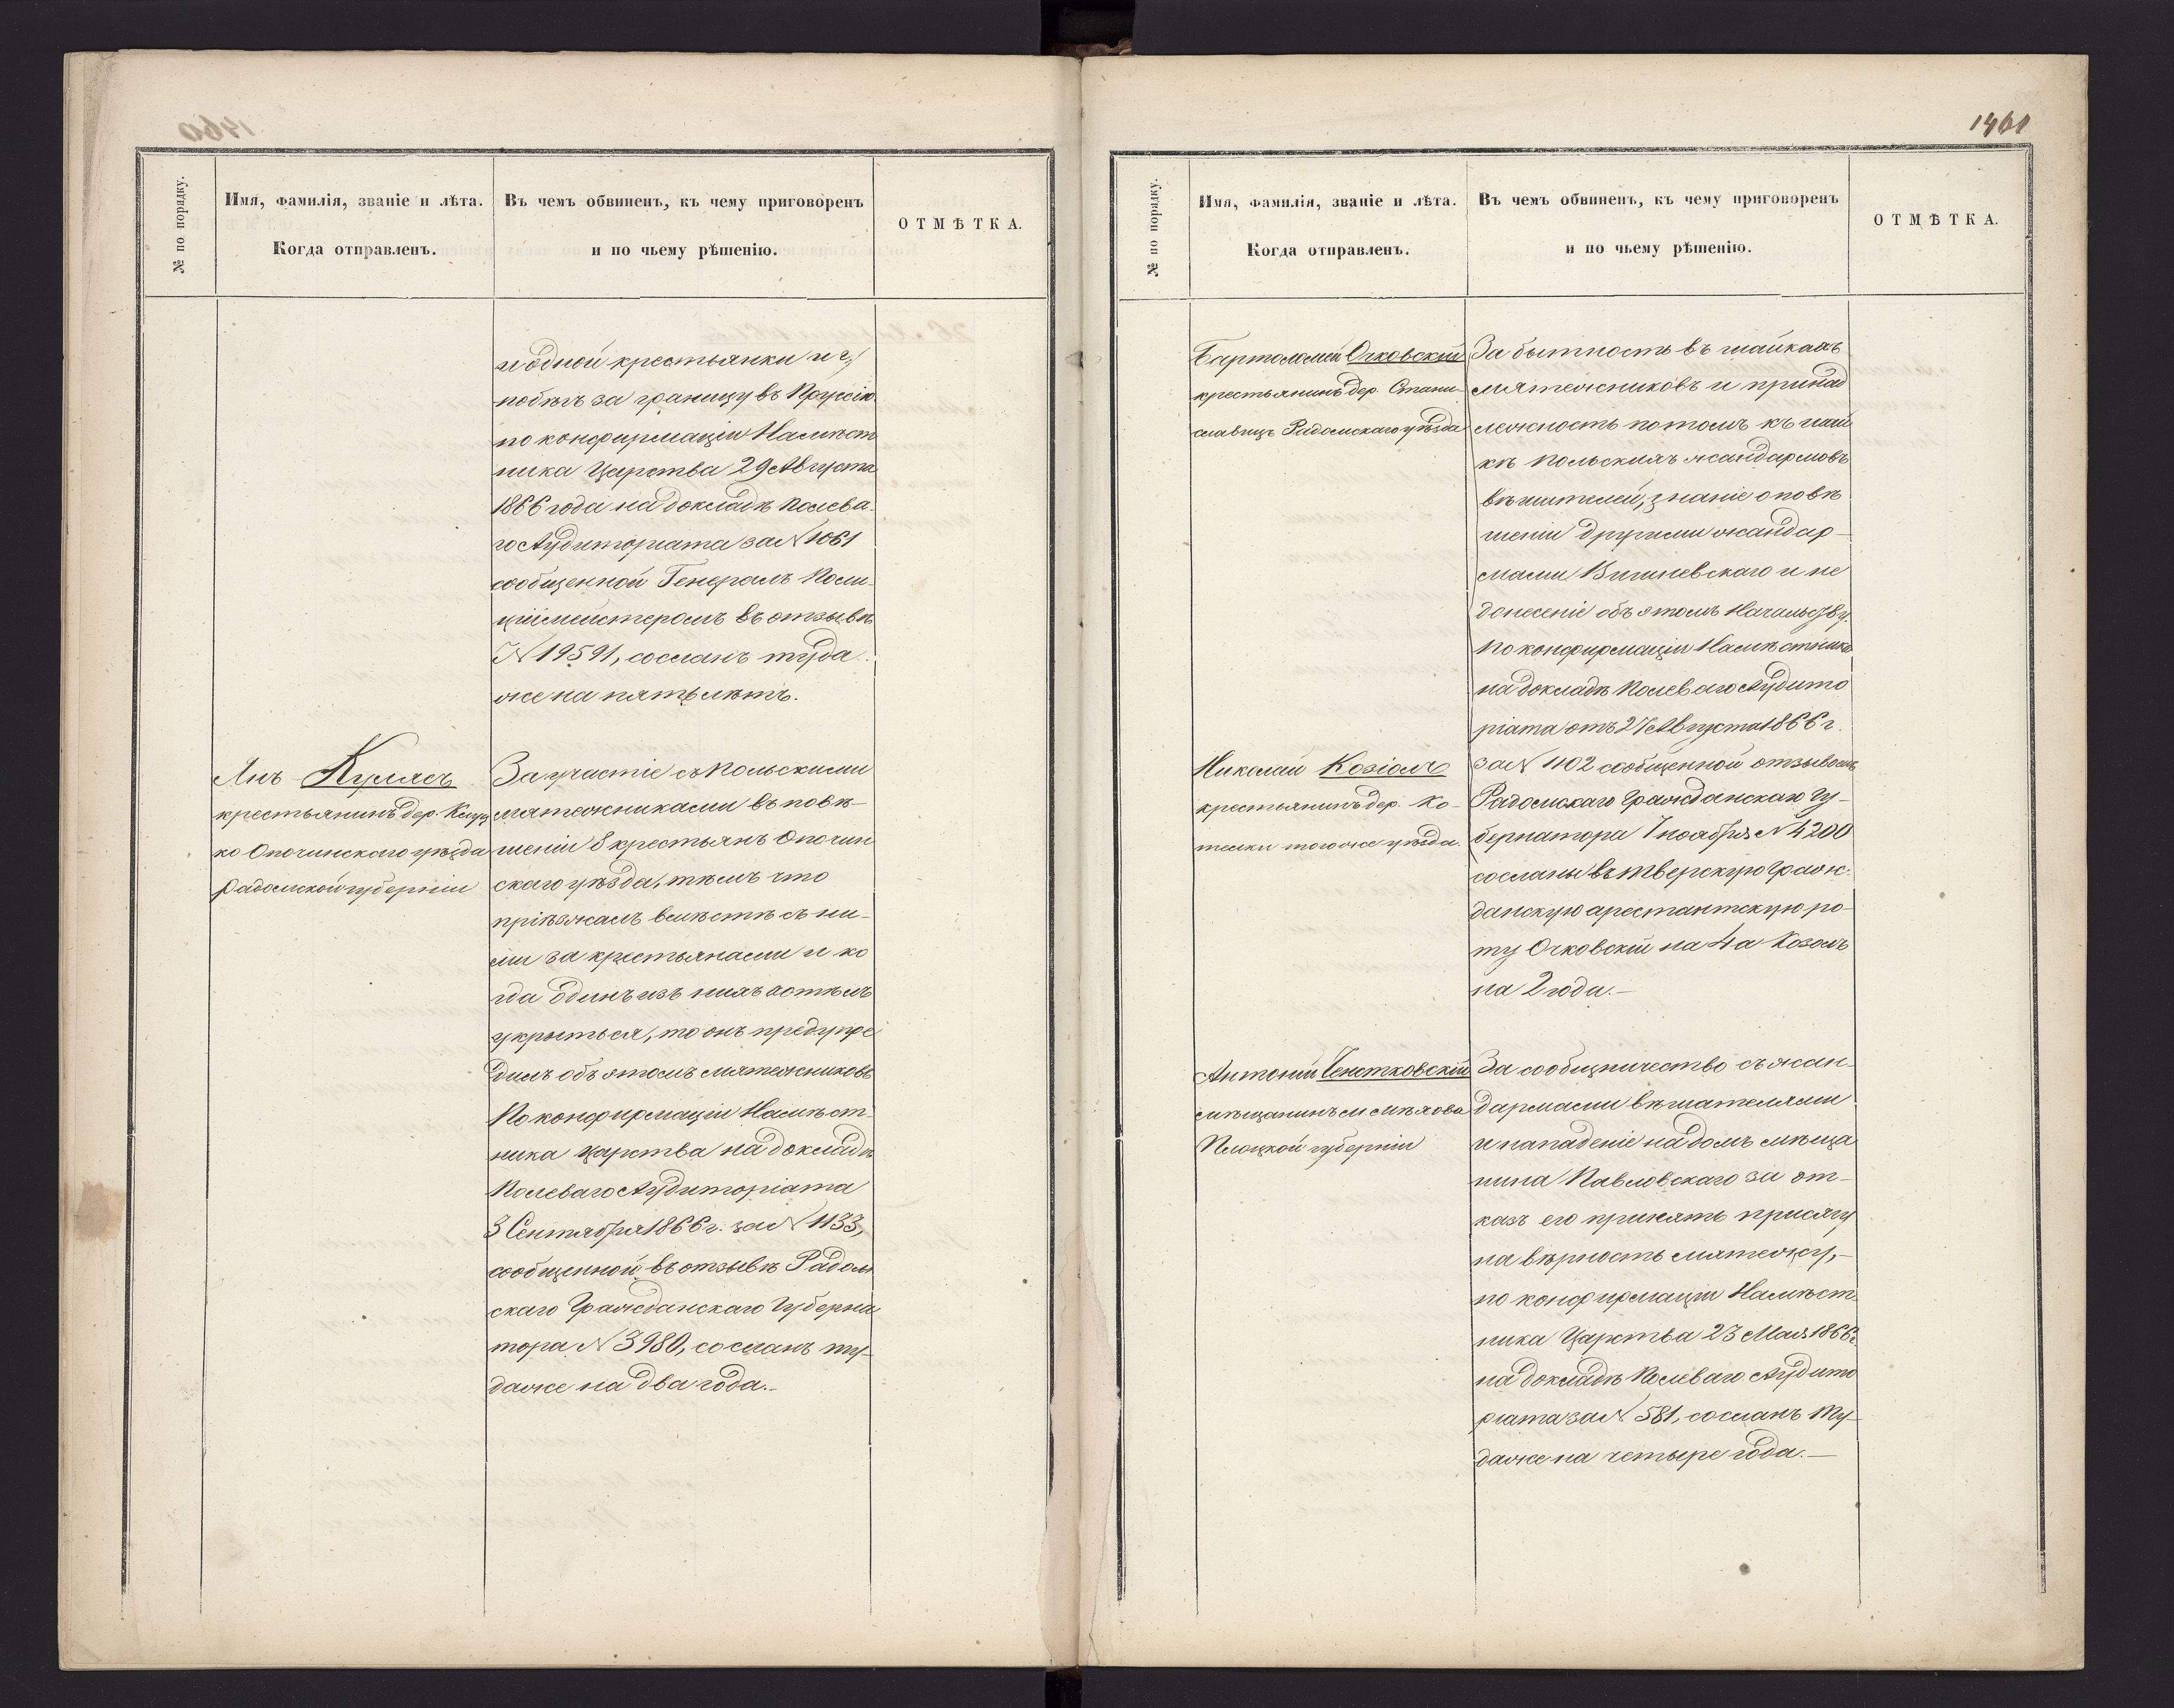 1461
№ по порядку.
Имя, фамилія, званіе и лѣта.
Когда отправленъ.
Въ чемъ обвиненъ, къ чему приговоренъ
и по чьему рѣшенію.
ОТМѢТКА.
и одной крестьянки и
побѣгъ за границу въ Пруссію
по конфирмаціи Намѣст
ника Царства 29 Августа
1866 года на докладѣ Полева-
го Аудиторіата за N 1061
сообщенной Генералъ Поли-
ціймейстеромъ въ отзывѣ
N 19591, сосланъ туда
же на пять лѣтъ.
Янъ Кулясъ
крестьянинъ дер.
ко Опочинскаго уѣзда
Радомской губерніи
За участіе съ польскими
мятежниками въ повѣ-
шеніи 8 крестьянъ Опочин
скаго уѣзда, тѣмъ что
пріѣзжалъ вмѣстѣ съ ни-
ми за крестьянами и ко
гда одинъ изъ нихъ
укрыться, то онъ предупре
дилъ объ этомъ мятежниковъ
По конфирмаціи Намѣст-
ника Царства на докладѣ
Полеваго Аудиторіата
3 Сентября 1866 г. за N 1133,
сообщенной въ отзывѣ Радом
скаго Гражданскаго Губерна
тора N 3980, сосланъ ту-
даже на два года.
№ по порядку.
Имя, фамилія, званіе и лѣта.
Когда отправленъ.
Въ чемъ обвиненъ, къ чему приговоренъ
и по чьему рѣшенію.
ОТМѢТКА.
Бартоломей Очковскій
крестьянинъ дер. Стани-
славицъ Радомскаго уѣзда
За бытность въ шайкахъ
мятежниковъ и принад
лежность потомъ къ шай
кѣ польскихъ жандармовъ
вѣшателей, знаніе о повѣ
шеніи другими жандар-
мами Вишневскаго и не
донесеніе объ этомъ Начальству.
По конфирмаціи Намѣстника
на докладѣ Полеваго Аудито
ріата отъ 27 Августа 1866 г.
за N 1102 сообщенной отзывомъ
Радомскаго Гражданскаго Гу-
бернатора 7 ноября N 4200
сосланы въ Тверскую Граж-
данскую арестантскую ро-
ту Очковскій на 4 а Козолъ
на 2 года.—
Николай Козіолъ
крестьянинъ дер. Ко-
телки того же уѣзда.
Антоній Ченстковскій
мѣщанинъ
Плоцкой губерніи
За сообщничество съ жан-
дармами вѣшателями
и нападеніе на домъ мѣща
нина Павловскаго за от-
казъ его принять присягу
на вѣрность мятежу,—
по конфирмаціи Намѣст-
ника Царства 23 Мая 1866 г.
на докладѣ Полеваго Аудито
ріата за N 581, сосланъ ту-
даже на четыре года.—